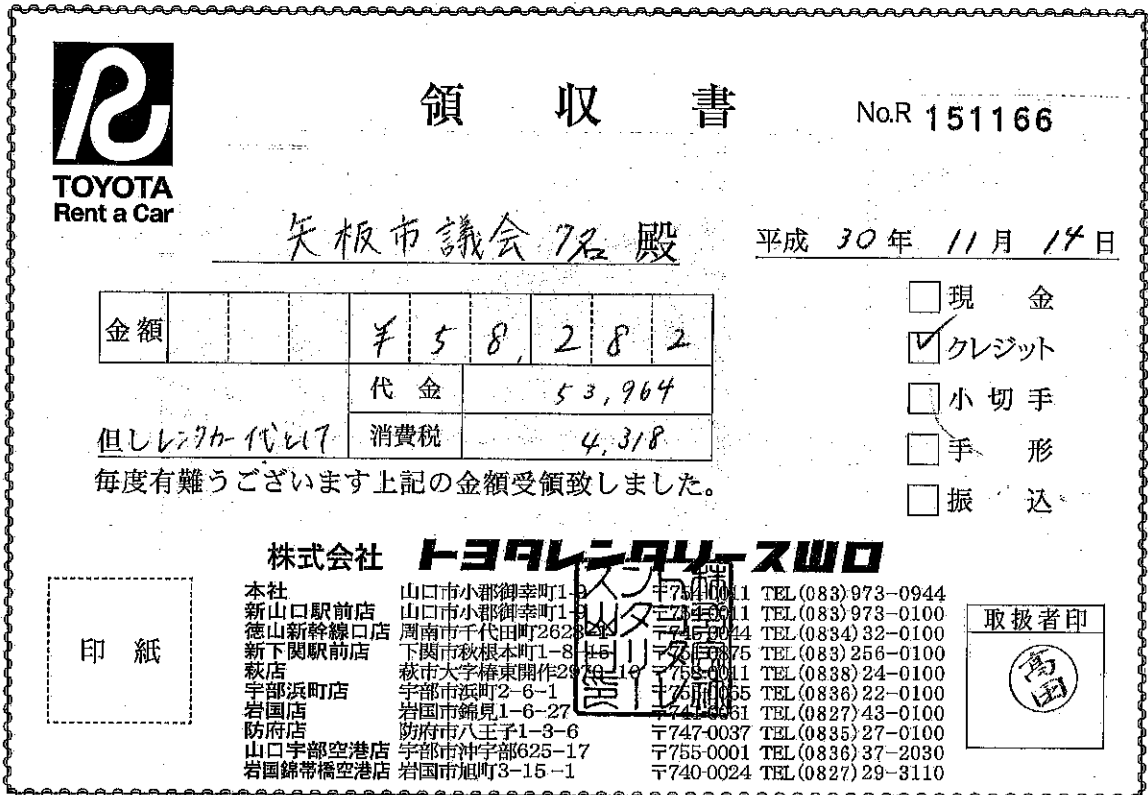 領収書
No.R 151166
TOYOTA
Rent a Car
矢板市議会 7名 殿
平成 30年 11月 14日
金額 ¥58,282
代金 53,964
消費税 4,318
但しレンタカー代として
毎度有難うございます上記の金額受領致しました。
現金
クレジット
小切手
手形
振込
株式会社 トヨタレンタリース山口
本社 山口市小郡御幸町1-9 〒754-0011 TEL(083)973-0944
新山口駅前店 山口市小郡御幸町1-9 〒754-0011 TEL(083)973-0100
徳山新幹線口店 周南市千代田町2628 〒745-0044 TEL(0834)32-0100
新下関駅前店 下関市秋根本町1-8-15 0875 TEL(083)256-0100
萩店 萩市大字椿東開作2970-10 〒758-0011 TEL(0838)24-0100
宇部浜町店 宇部市浜町2-6-1 TEL(0836)22-0100
岩国店 岩国市錦見1-6-27 〒741-0061 TEL(0827)43-0100
防府店 防府市八王子1-3-6 〒747-0037 TEL(0835)27-0100
山口宇部空港店 宇部市沖宇部625-17 〒755-0001 TEL(0836)37-2030
岩国錦帯橋空港店 岩国市旭町3-15-1 〒740-0024 TEL(0827)29-3110
印紙
取扱者印